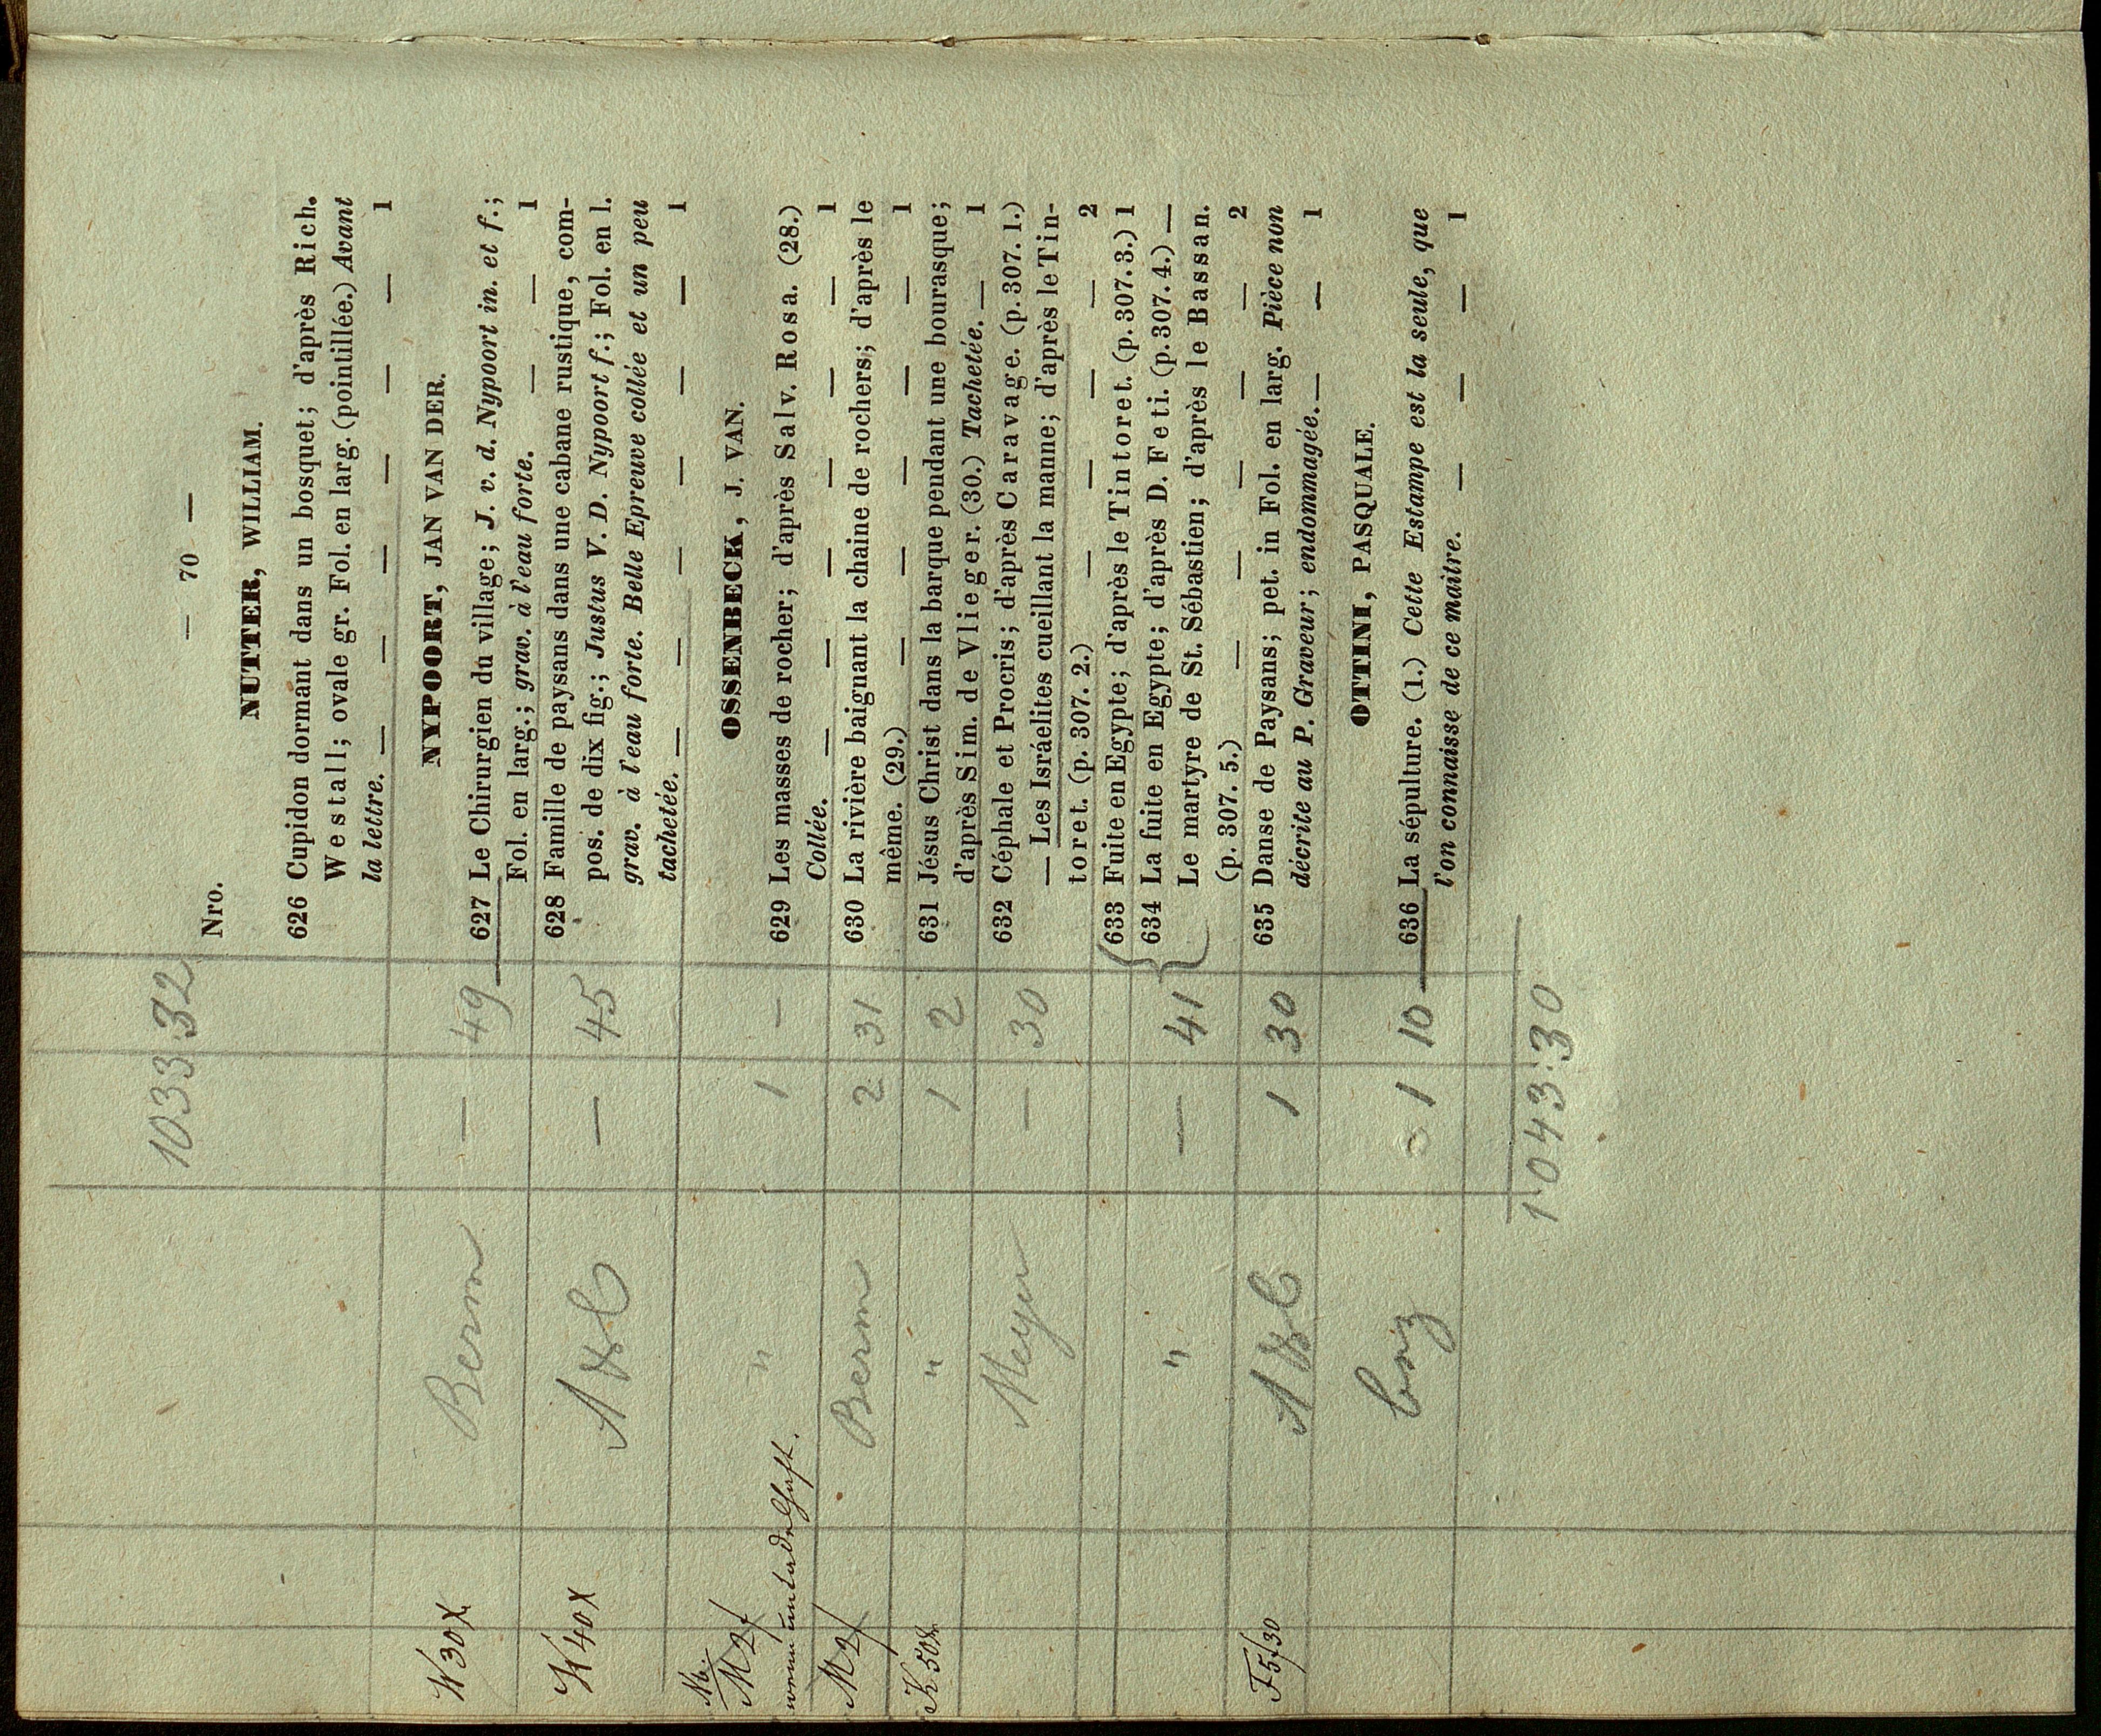 1033 32
— 70 —
Nro.
NUTTER, WILLIAM.
626 Cupidon dormant dans un bosquet; d'après Rich.
Westall; ovale gr. Fol. en larg. (pointillée.) Avant
la lettre. — — — — — — 1
NYPOORT, JAN VAN DER.
W 30 X Berm — 49 627 Le Chirurgien du village; J. v. d. Nypoort in. et f.;
Fol. en larg.; grav. à l'eau forte. — — 1
W 40 X A & C — 45 628 Famille de paysans dans une cabane rustique, com-
pos. de dix fig.; Justus V. D. Nypoort f.; Fol. en l.
grav. à l'eau forte. Belle Epreuve collée et un peu
tachetée. — — — — — — 1
OSSENBECK, J. VAN.
Nb.
M 2 f " 1 — 629 Les masses de rocher; d'après Salv. Rosa. (28.)
wenn untadelhaft.
Collée. — — — — — — 1
M 2 f Berm 2 31 630 La rivière baignant la chaine de rochers; d'après le
même. (29.) — — — — — 1
K 50 X " 1 2 631 Jésus Christ dans la barque pendant une bourasque;
d'après Sim. de Vlieger. (30.) Tachetée. — 1
Meyer — 30 632 Céphale et Procris; d'après Caravage. (p. 307. 1.)
— Les Israélites cueillant la manne; d'après le Tin-
toret. (p. 307. 2.) — — — — 2
633 Fuite en Egypte; d'après le Tintoret. (p. 307. 3.) 1
" — 41 634 La fuite en Egypte; d'après D. Feti. (p. 307. 4.) —
Le martyre de St. Sébastien; d'après le Bassan.
(p. 307. 5.) — — — — — 2
F 5f30 A & C 1 30 635 Danse de Paysans; pet. in Fol. en larg. Pièce non
décrite au P. Graveur; endommagée. — — 1
OTTINI, PASQUALE.
1 10 636 La sépulture. (1.) Cette Estampe est la seule, que
l'on connaisse de ce maitre. — — — 1
1043:30